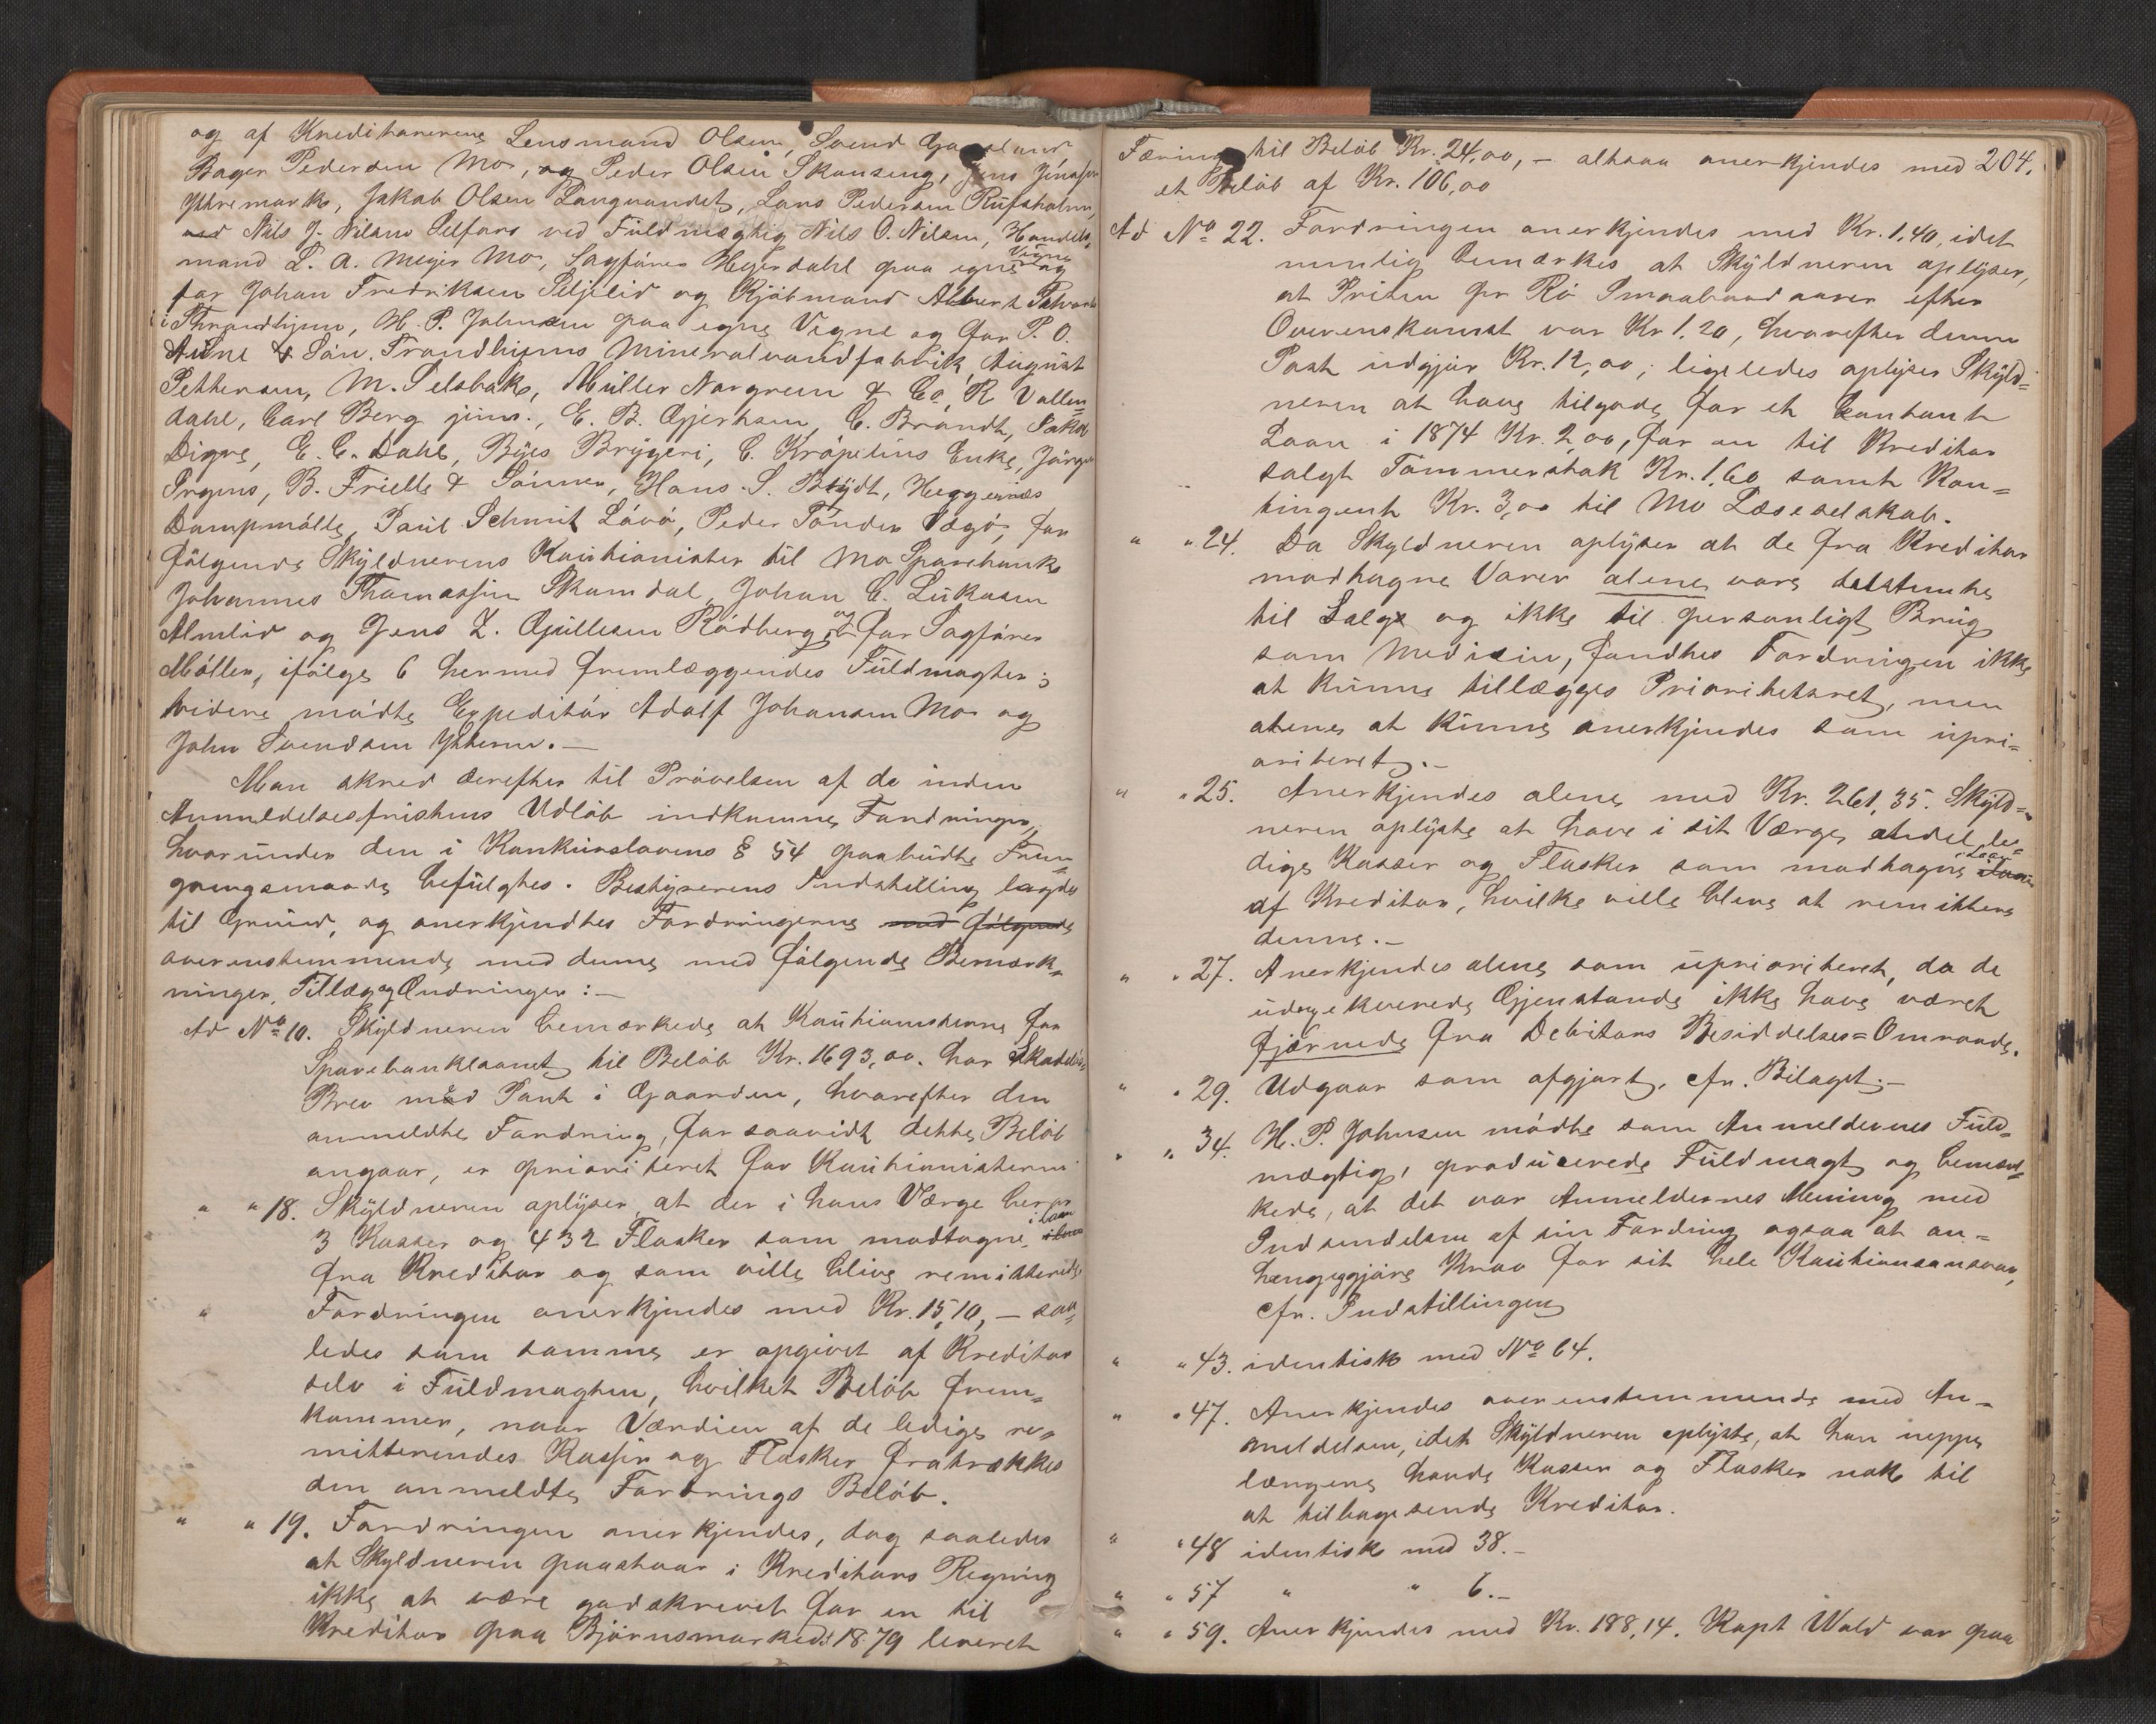 og af Kreditorerne Lensmand Olsen, Svend
Bager Pedersen Mo, og Peder Olsen Skanseng, Jens Jonassen
Yttremark, Jakob Olsen Langvandet, Lars Pedersen Rufsholm,
Nils J. Nilsens Selfors ved Fuldmægtig Nils O. Nilsen, Handels-
mand L. A. Meyer Mo, Sagfører Heyerdahl paa egne Vegne og
for Johan Fredriksen Seljelid og Kjøbmand Albert
i Throndhjem, H. P. Johnsen paa egne Vegne og for P. O.
Aune & Søn, Trondhjems Mineralvandfabrik, August
Pettersen, M. Selsbak, Müller Norgren & Co, R Vullen-
dahl, Carl Berg jun., E. B. Gjertsen, C. Brandt, Jakob
Digre, E. C. Dahl, Byes Bryggeri, C. Kröpelins Enke, Jørgen
Irgens, B. Frielle & Sønner, Hans S. Blydt, Heggernæs
Dampmølle, Paul Schmit Lövö, Peder Tønder Vægø, for
følgende Skyldnerens Kautionister til Mo Sparebank
Johannes Thomassen Skamdal, Johan C. Lukasen
Almlid og Jens Z. Gullesen Rødberg, og for Sagfører
Møller, ifølge 6 hermed fremlæggendes Fuldmagter;
videre mødte Expeditør Adolf Johansen Mo og
John Svendsen Ytteren.—
Man skred derefter til Prøvelsen af de inden
Anmeldelsesfristens Udløb indkomne Fordringer,
hvorunder den i Konkurslovens § 54 paabudte Frem-
gangsmaade befulgtes. Bestyrerens Indstilling lagdes
til Grund, og anerkjendtes Fordringerne med følgende
overensstemmende med denne med følgende Bemærk-
ninger, Tillæg og Ændringer:—
Ad No 10. Skyldneren bemærkede at Kautionisterne for
Sparebanklaanet til Beløb Kr. 1693,00. har Skadesløs-
Brev med Pant i Gaarden, hvorefter den
anmeldte Fordring, forsaavidt dette Beløb
angaar, er prioriteret for Kautionisterne
" " 18. Skyldneren oplyser, at der i hans Værge beror
3 Kasser og 432 Flasker som modtagne i Laan
fra Kreditor og som ville blive remitterede
" Fordringen anerkjendes med Kr. 15,10,— saa-
ledes som samme er opgivet af Kreditor
selv i Fuldmagten, hvilket Beløb frem-
kommer, naar Værdien af de ledige re-
mitterendes Kasser og Flasker fratrækkes
den anmeldte Fordrings Beløb.
" " 19. Fordringen anerkjendes, dog saaledes
at Skyldneren paastaar i Kreditors Regning
ikke at være godskrevet for en til
Kreditor paa Bjørnsmarked 1879 leveret
Færing til Beløb Kr. 24,00,— altsaa anerkjendes med 204.
et Beløb af Kr. 106,00
Ad No 22. Fordringen anerkjendes med Kr. 1,40, idet
nemlig bemærkes at Skyldneren oplyser,
at Prisen pr Ro Smaabaadaarer efter
Overenskomst var Kr 1.20, hvorefter denne
Post udgjør Kr. 12,00; ligeledes oplyser Skyld-
neren at have tilgode for et kontant
Laan i 1874 Kr. 2,00, for en til Kreditor
solgt Tømmerstok Kr. 1.60 samt Kon-
tingent Kr. 3,00 til Mo Læseselskab.
" " 24. Da Skyldneren oplyser at de fra Kreditor
modtagne Varer alene vare bestemte
til Salg og ikke til personligt Brug
som Medisin, fandtes Fordringen ikke
at kunne tillægges Prioritetsret, men
alene at kunne anerkjendes som upri-
oriteret.—
" " 25. Anerkjendes alene med Kr. 261,35. Skyld-
neren oplyste at have i sit Værge endel le-
dige Kasser og Flasker som modtagne i Laan
af Kreditor, hvilke ville blive at remittere
denne.—
" " 27. Anerkjendes alene som uprioriteret, da de
udpekerede Gjenstande ikke have været
fjærnede fra Debitors Besiddelses-Omraade.
" " 29. Udgaar som afgjort, cfr. Bilaget.—
" " 34. H. P. Johnsen mødte som Anmeldernes Fuld-
mægtig, producerede Fuldmagt og bemær-
kede, at det var Anmeldernes Mening med
Indsendelsen af sin Fordring ogsaa at an-
hængiggjøre Krav for sit hele Kautionsansvar,
cfr. Indstillingen
" " 43. identisk med No 64.
" " 47. Anerkjendes overensstemmende med An-
meldelsen, idet Skyldneren oplyste, at han neppe
længere havde Kasser og Flasker nok til
at tilbagesende Kreditor.
" " 48 identisk med 38.—
" " 57 " " 6.—
" " 59. Anerkjendes med Kr. 188,14. Kapt Wold var paa